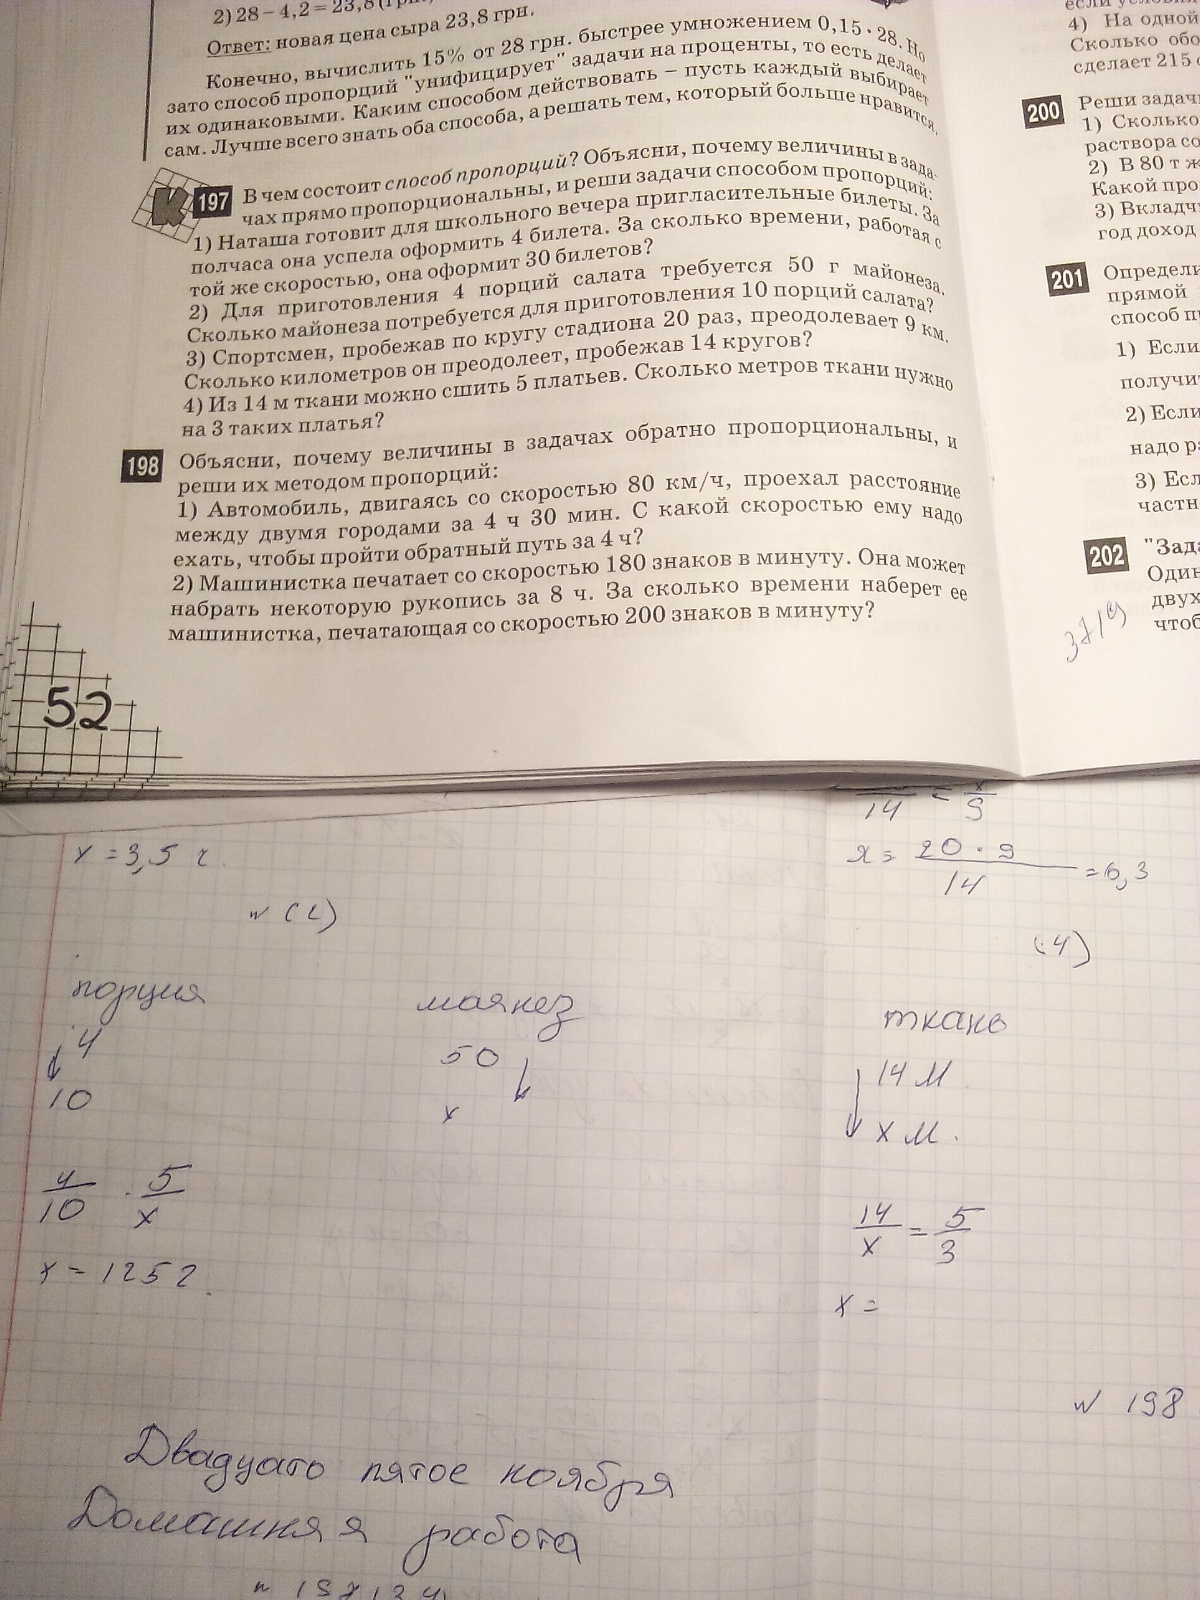 2) 28 – 4,2 = 23,8 (грн.
Ответ: новая цена сыра 23,8 грн.
Конечно, вычислить 15% от 28 грн. быстрее умножением 0,15 · 28. Но
зато способ пропорций "унифицирует" задачи на проценты, то есть делает
их одинаковыми. Каким способом действовать – пусть каждый выбирает
сам. Лучше всего знать оба способа, а решать тем, который больше нравится.
К 197 В чем состоит способ пропорций? Объясни, почему величины в зада-
чах прямо пропорциональны, и реши задачи способом пропорций:
1) Наташа готовит для школьного вечера пригласительные билеты. За
полчаса она успела оформить 4 билета. За сколько времени, работая с
той же скоростью, она оформит 30 билетов?
2) Для приготовления 4 порций салата требуется 50 г майонеза.
Сколько майонеза потребуется для приготовления 10 порций салата?
3) Спортсмен, пробежав по кругу стадиона 20 раз, преодолевает 9 км.
Сколько километров он преодолеет, пробежав 14 кругов?
4) Из 14 м ткани можно сшить 5 платьев. Сколько метров ткани нужно
на 3 таких платья?
198 Объясни, почему величины в задачах обратно пропорциональны, и
реши их методом пропорций:
1) Автомобиль, двигаясь со скоростью 80 км/ч, проехал расстояние
между двумя городами за 4 ч 30 мин. С какой скоростью ему надо
ехать, чтобы пройти обратный путь за 4 ч?
2) Машинистка печатает со скоростью 180 знаков в минуту. Она может
набрать некоторую рукопись за 8 ч. За сколько времени наберет ее
машинистка, печатающая со скоростью 200 знаков в минуту?
52
если условия
4) На одной
Сколько обо
сделает 215 о
200 Реши задачи
1) Сколько
раствора со
2) В 80 т ж
Какой про
3) Вкладчи
год доход
201 Определи
прямой
способ п
1) Если
получит
2) Если
надо ра
3) Есл
частн
202 "Зада
Один
двух
чтоб
x = 3,5 г.
порция
4
10
4/10 · 5/x
x = 125 г.
маянез
50
x
14 = x/9
x = 20 · 9 / 14 = 6,3
(4)
ткань
14 м
x м.
14/x = 5/3
x =
№ 198
Двадцато пятое ноября
Домашняя работа